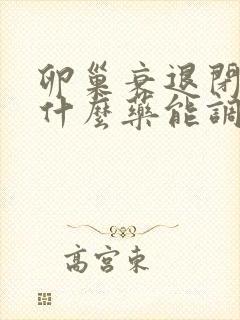 卵巢衰退閉
什麼藥能調
高宮東